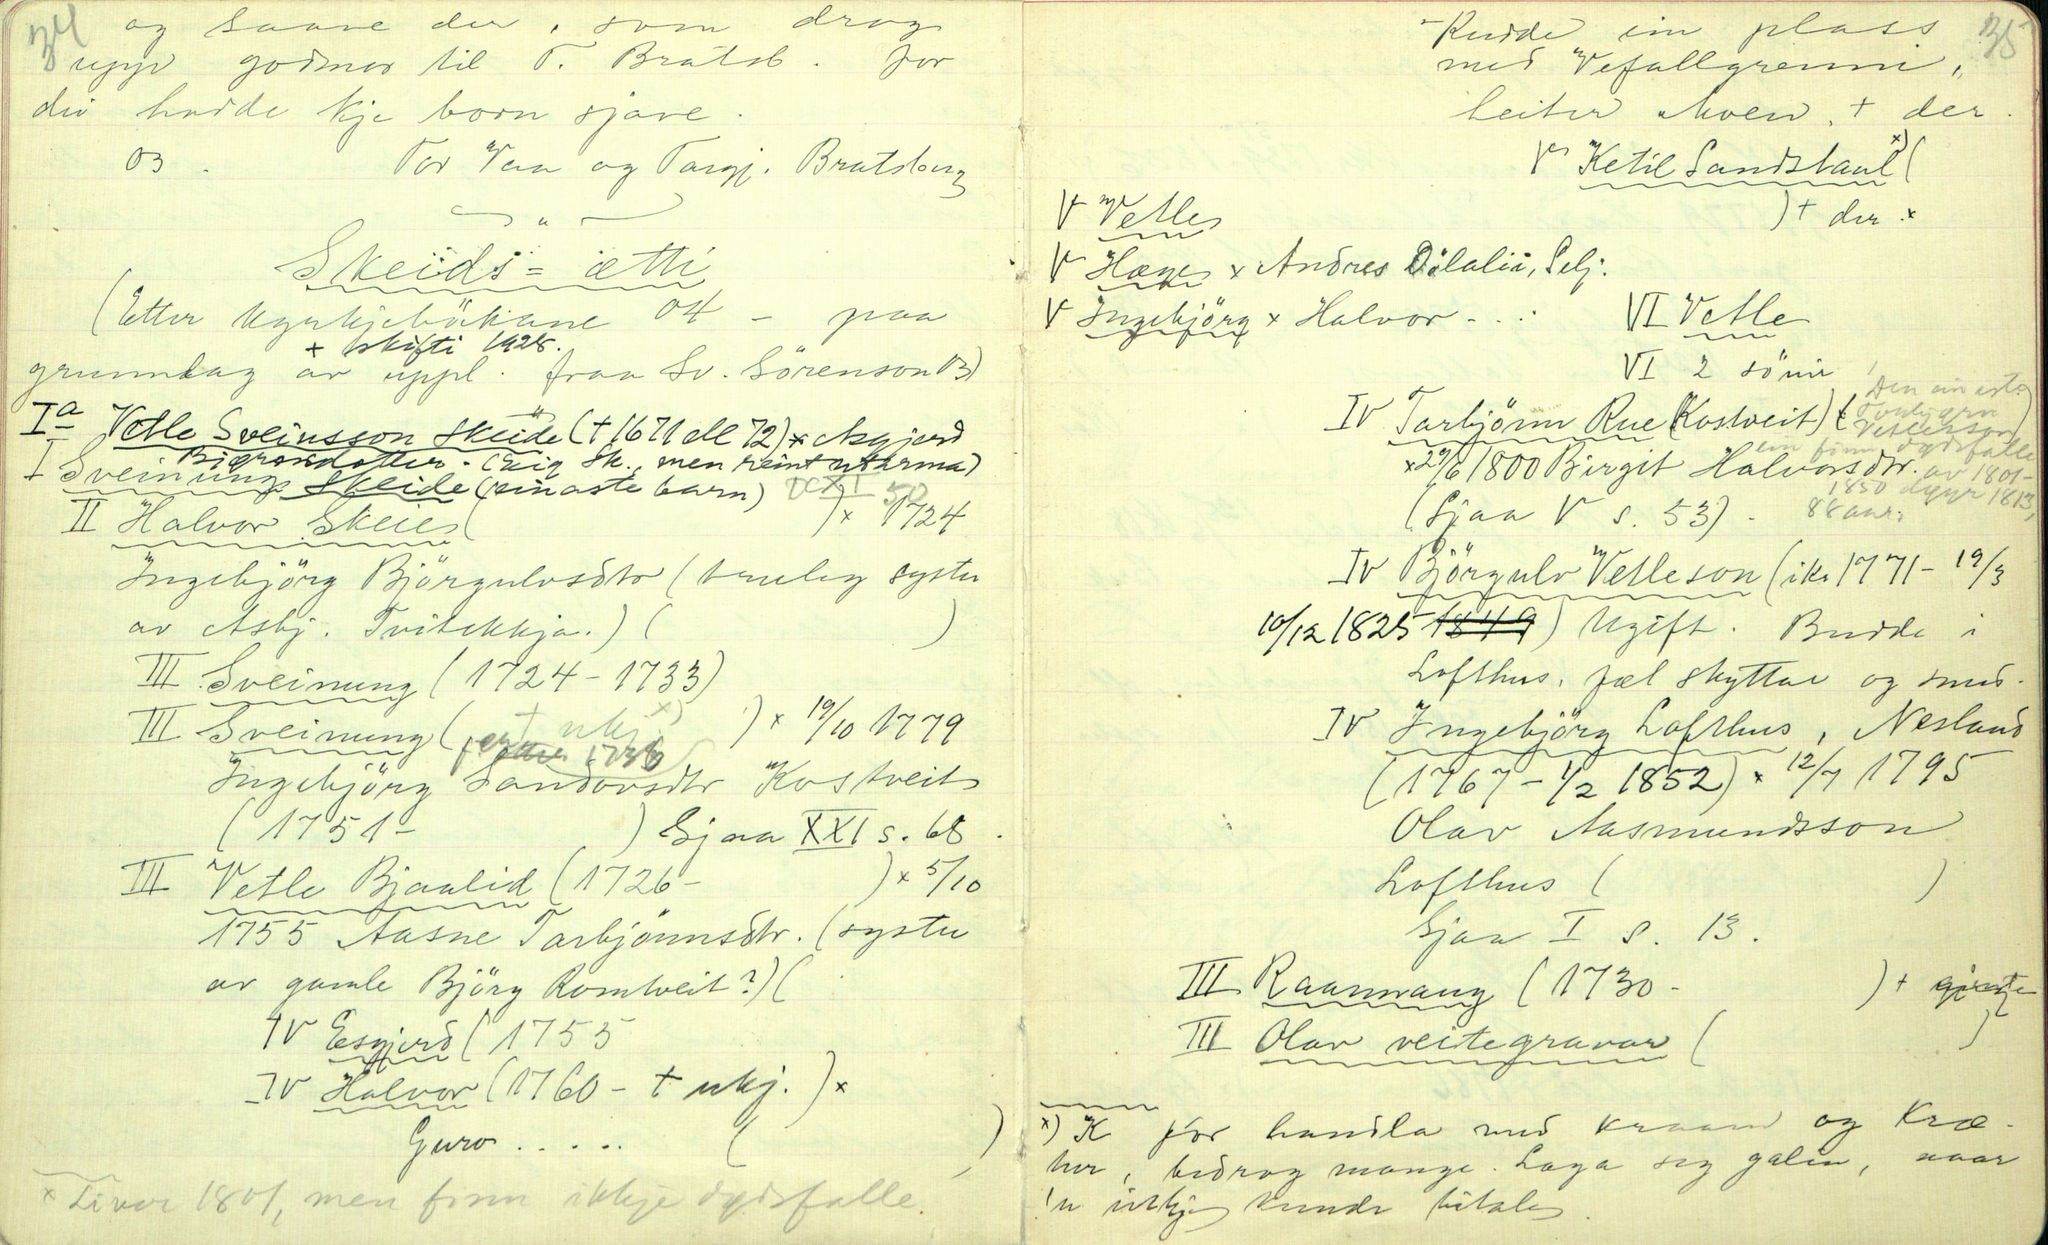 34
og saave der, som drog
upp godmor til T. Bratsb. for
dei hadde kje born sjøve.
03. Tor Vaa og Targj. Bratsberg
Skeids=ætti
(Etter kyrkjebökane 04 – paa
+ skifti 1925.
grunnlag av uppl. fraa Sv. Sörenson 03)
Ia Vetle Sveinsson Skeide († 1671 ell 72) x Asgjerd
(Eig Sk., men reint utarma)
I Sveinung Skeide (einaste barn)
II Halvor Skeie ( ) x 1724
Ingebjörg Björgulvsdtr (truleg syster
av Asbj. Tvitekkja.) ( )
III Sveinung (1724–1733)
III Sveinung ( † ukj. x) ) x 19/10 1779
1736
Ingebjörg Sandorsdtr Kostveit
(1751– ) Sjaa XXI s. 68.
III Vetle Bjaalid (1726– ) x 5/10
1755 Aasne Tarbjönnsdtr. (syster
av gamle Björg Romtveit?) (
IV Esgjerd (1755
IV Halvor (1760 – † ukj.) x
Guro ..... ( )
x Liver 1801, men finn ikkje dydsfalle.
35
Rudde ein plass
med Vefallgrenni,
heiter Moen, † der.
V Ketil Sandstaul x) (
) † der. x
V Vetle
V Hæge x Andres Dilalii, Selj.
V Ingebjörg x Halvor ...
VI Vetle
VI 2 söner
IV Tarbjörn Rue (Kostveit) (
Den ein
Torbjørn
Vetleson
ein finn dydsfalle
av 1801–
1850 døyr 1813,
88 aar.
x 29/6 1800 Birgit Halvorsdtr.
(Sjaa V s. 53).
IV Björgulv Vetleson (ikr 1771 – 19/3
10/12 1825 1849) Ugift. Budde i
Lofthus. fæl skyttar og smed.
IV Ingebjörg Lofthus, Nesland
(1767 – 1/2 1852) x 12/7 1795
Olav Aasmundsson
Lofthus ( )
Sjaa I s. 13.
III Raannaug (1730 – ) †
III Olav veitegravar ( )
x) K for handla med kraam og kræ-
ter, bedrog mange. Laga seg galen, naar
'n ikkje kunde betale.